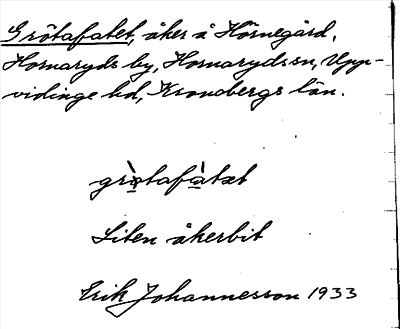 Grötafatet, åker å Hörnegård,
Hornaryds by, Hornaryds sn, Upp-
vidinge hd, Kronobergs län.
grø̀tafàtæt
Liten åkerbit
Erik Johannesson 1933